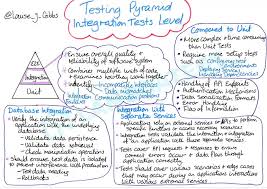 @louise_j_Gibbs
Testing Pyramid
Integration Tests Level
E2E
Integration
Unit
Ensure overall quality &
reliability of software system
Combines multiple units of
code. Examines how they work together
Identify
Compared to Unit
More complex & time consuming
than Unit Tests
Require more setup steps
such as configuring test
Database Integration
Verify the integration of an
application with the underlying
database
Validate data persistence
Validate data retrieval
Check data manipulation
Should ensure test data is isolated
to prevent interference with production
Test data reading
Rollbacks
Integration with
Separate Services
Applications rely on external services or APIs to perform
specific functions or access necessary resources
Integration tests validate the interaction & integration of an
application with these separate services
Tests cover API requests & responses to ensure
correct errors occur & data flows through
application correctly
Tests should cover various scenarios & edge cases
that may occur during an applications interaction
with various external services
Handling of API Supports
Authentication Mechanisms
Data Transformation
Error Handling
Flow of Information